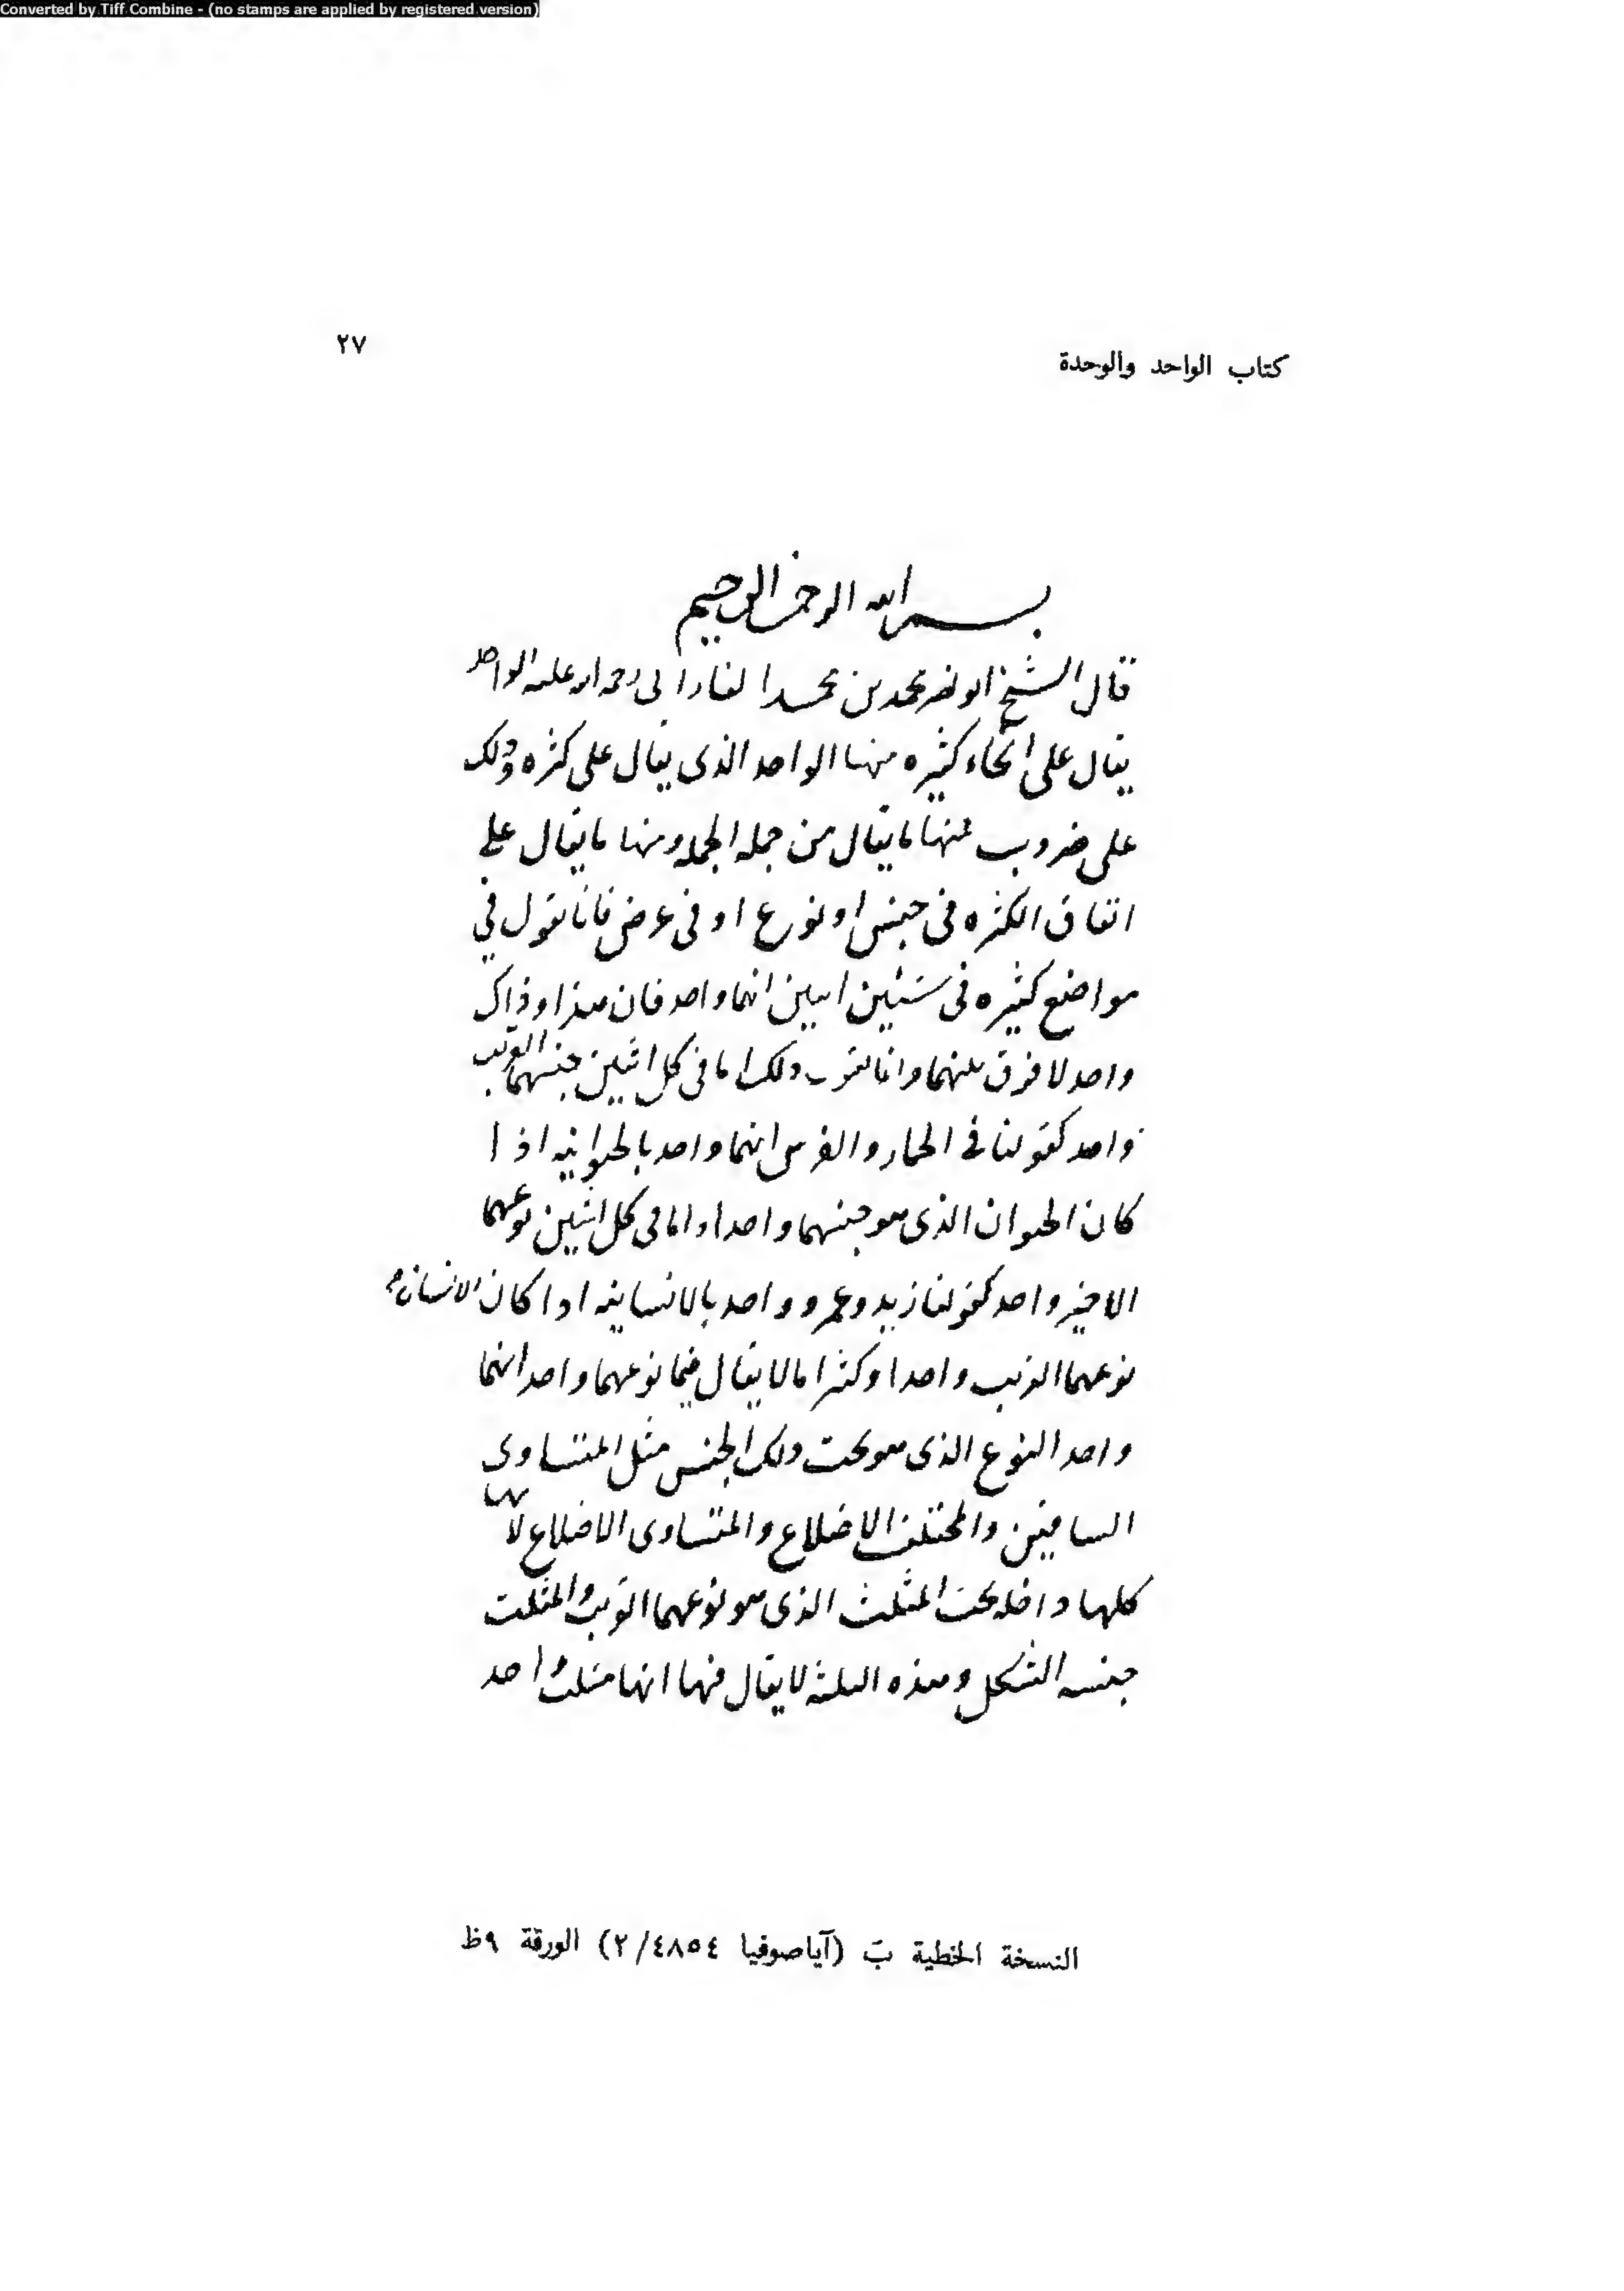 Converted by Tiff Combine - (no stamps are applied by registered version)
كتاب الواحد والوحدة
٢٧
بسم الله الرحمن الرحيم
قال الشيخ ابو نصر محمد بن محمد الفارابى رحمه الله عليه الواحد
يقال على انحاء كثيره منها الواحد الذى يقال على كثره وذلك
على ضروب فمنها ما يقال من جمله الجمله ومنها ما يقال على
اتفاق الكثره فى جنس او نوع او فى عرض فانا نقول في
مواضع كثيره فى شيئين اثنين انهما واحد فان هذا وذاك
واحد لا فرق بينهما وانا نقول ذلك اما فى كل اثنين جنسهما القريب
واحد كقولنا في الحمار والفرس انهما واحد بالحيوانيه اذا
كان الحيوان الذى هو جنسهما واحدا واما فى كل اثنين نوعهما
الاخير واحد كقولنا زيد وعمرو واحد بالانسانيه اذا كان الانسان
نوعهما القريب واحدا وكثيرا ما لا يقال فيما نوعهما واحد انهما
واحد النوع الذى هو تحت ذلك الجنس مثل المتساوى
الساقين والمختلف الاضلاع والمتساوى الاضلاع لانها
كلها داخله تحت المثلث الذى هو نوعهما القريب والمثلث
جنسه الشكل وهذه الثلثه لا يقال فيها انها مثلث واحد
النسخة الخطية ب (آياصوفيا ٢/٤٨٥٤) الورقة ٩ظ